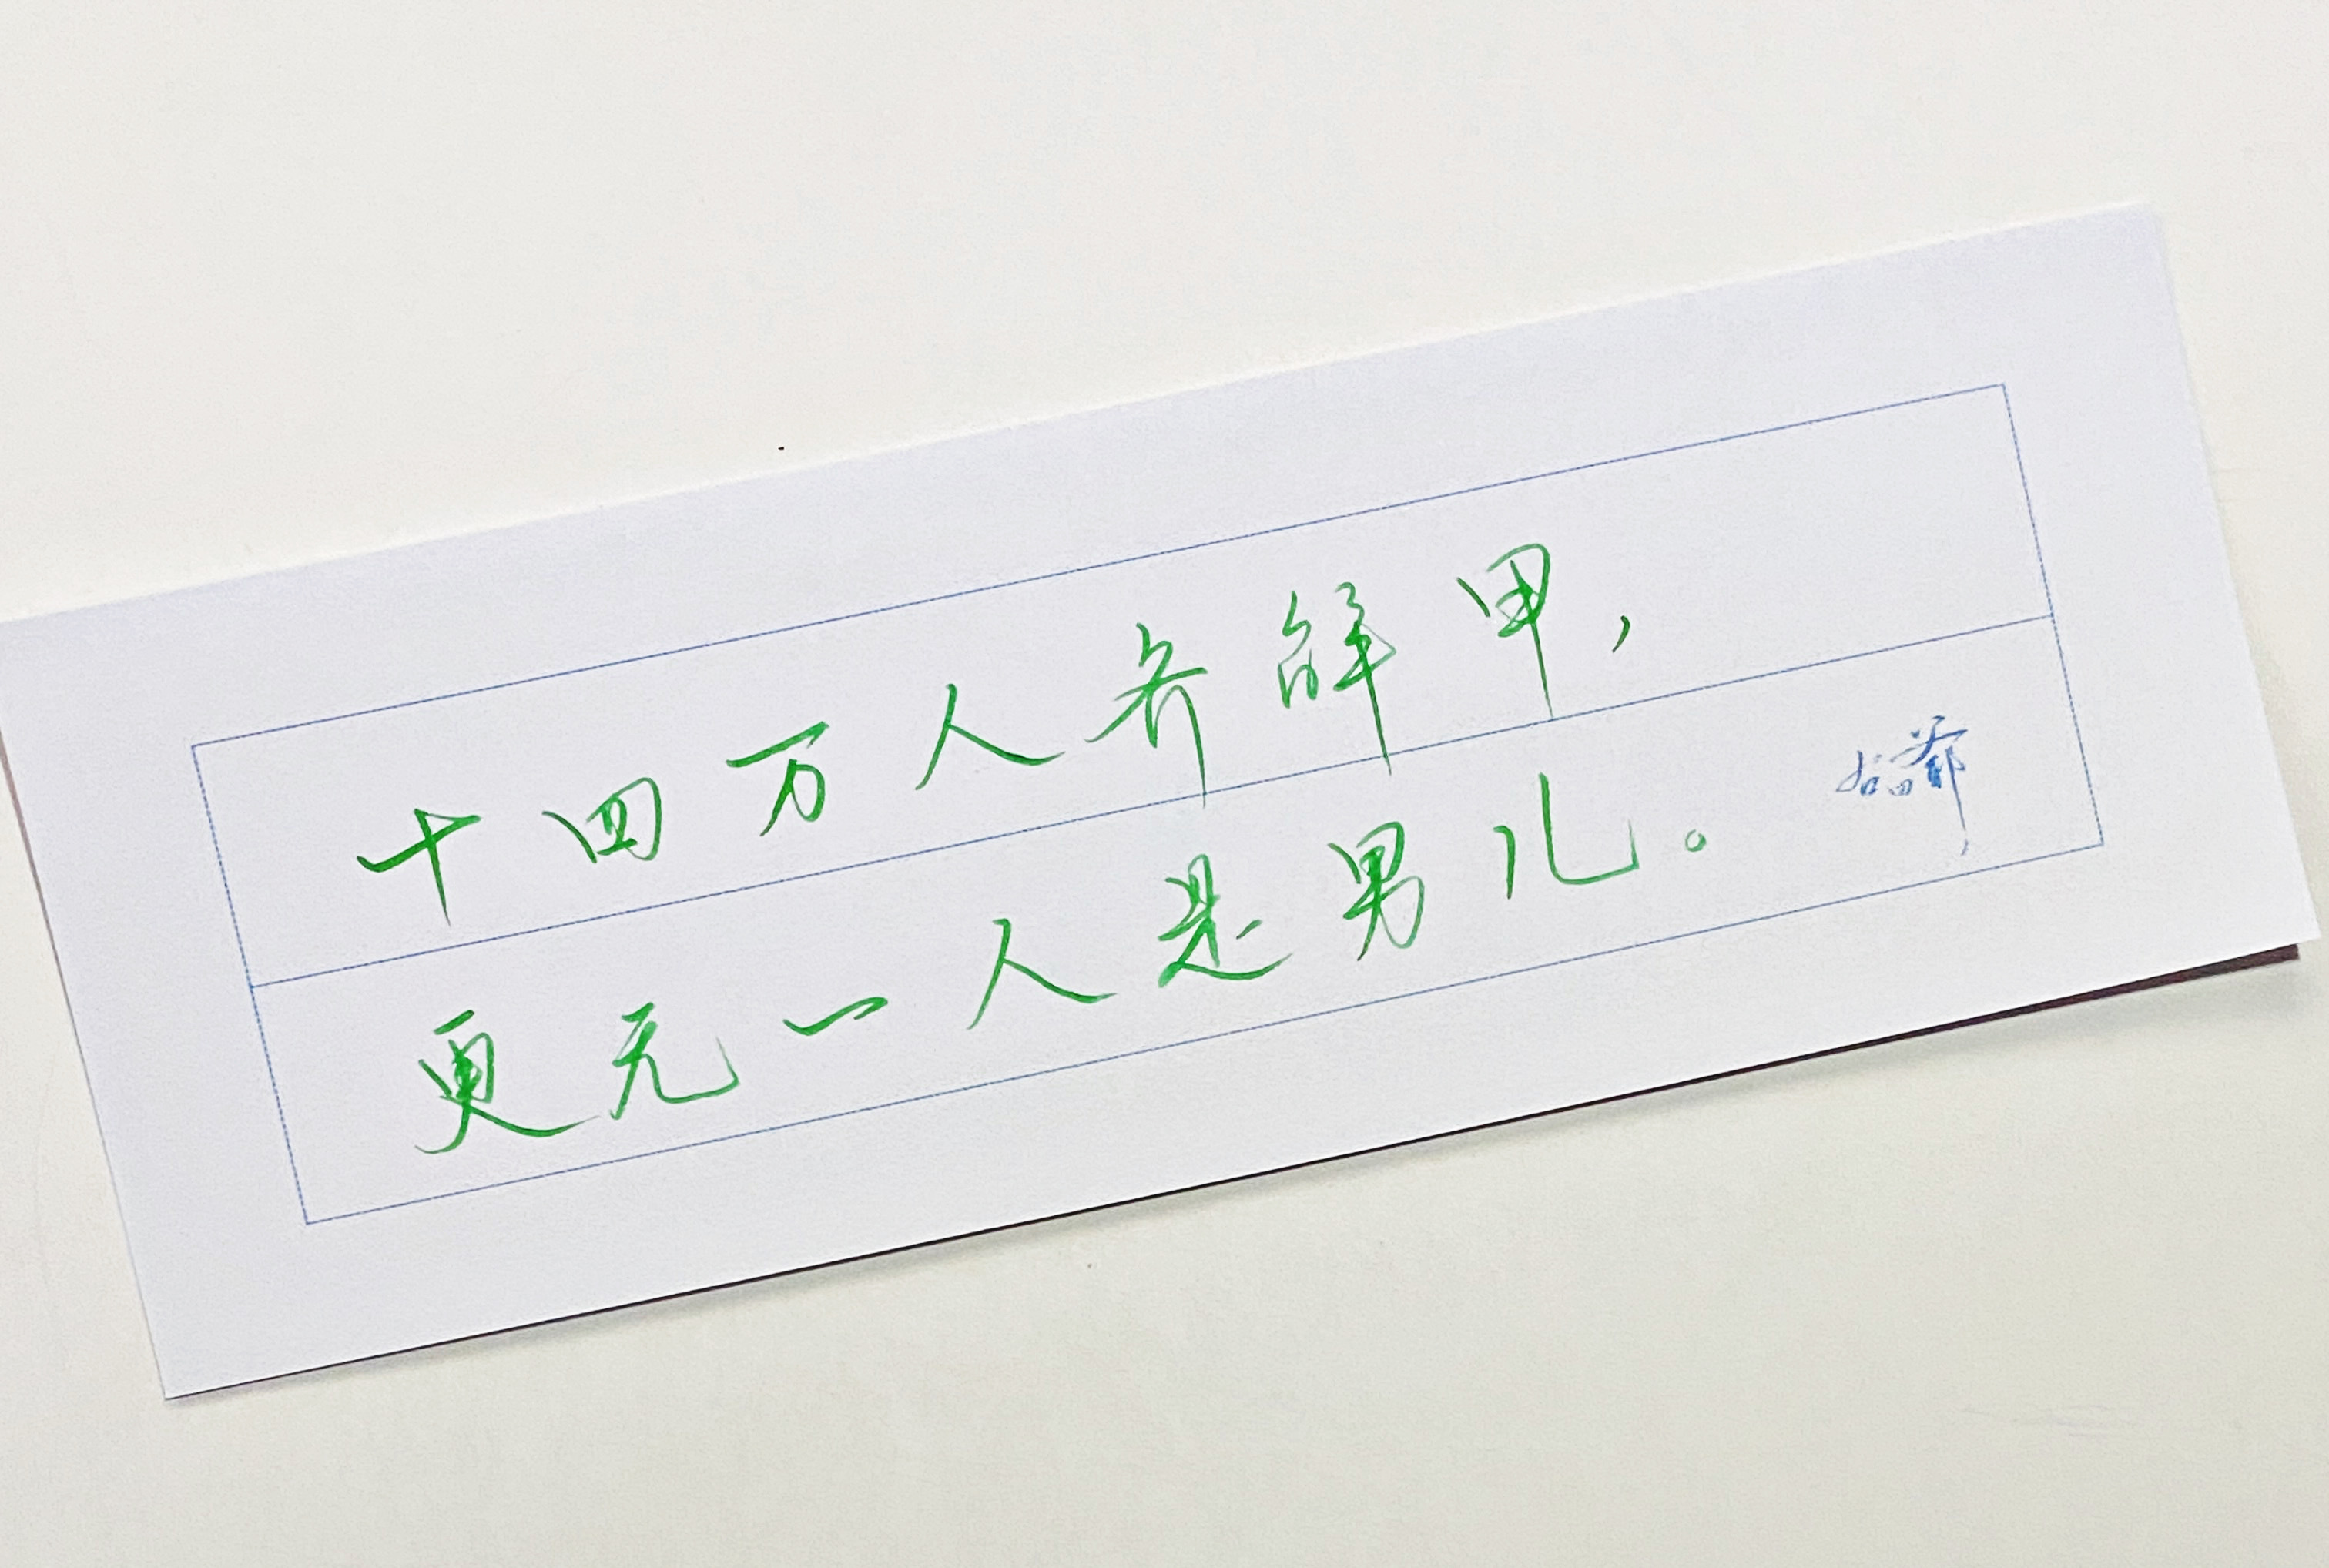 十四万人齐解甲，
更无一人是男儿。